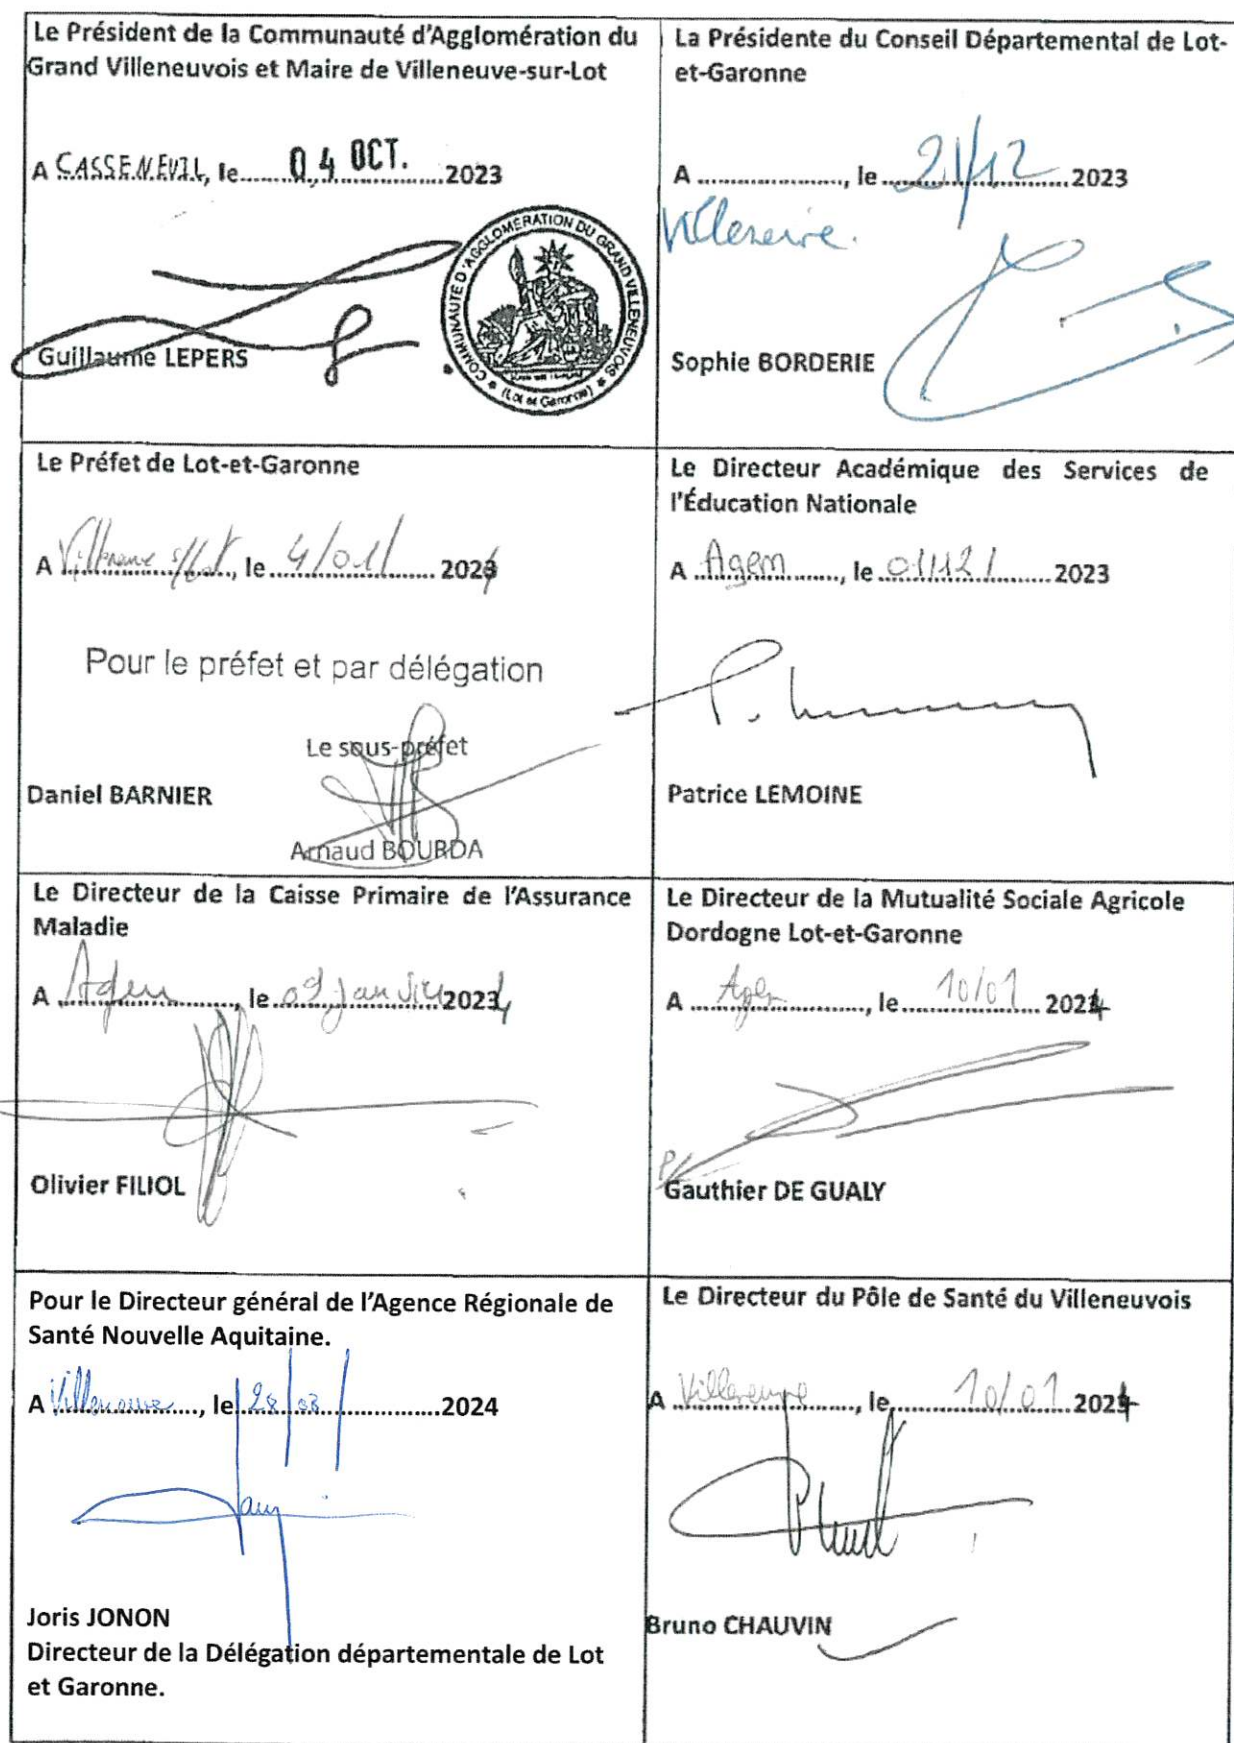 Le Président de la Communauté d'Agglomération du
Grand Villeneuvois et Maire de Villeneuve-sur-Lot
A CASSENEUIL, le 04 OCT. 2023
COMMUNAUTÉ D'AGGLOMÉRATION DU GRAND VILLENEUVOIS
(Lot et Garonne)
Guillaume LEPERS
La Présidente du Conseil Départemental de Lot-
et-Garonne
A ..................., le 21/12 2023
Villeneuve.
Sophie BORDERIE
Le Préfet de Lot-et-Garonne
A Villeneuve s/Lot, le 4/01/ 2024
Pour le préfet et par délégation
Le sous-préfet
Daniel BARNIER
Arnaud BOURDA
Le Directeur Académique des Services de
l'Éducation Nationale
A Agen, le 01/12/ 2023
Patrice LEMOINE
Le Directeur de la Caisse Primaire de l'Assurance
Maladie
A Agen, le 09 janvier 2024
Olivier FILIOL
Le Directeur de la Mutualité Sociale Agricole
Dordogne Lot-et-Garonne
A Agen, le 10/01 2024
P/
Gauthier DE GUALY
Pour le Directeur général de l'Agence Régionale de
Santé Nouvelle Aquitaine.
A Villeneuve, le 28/03/ 2024
Joris JONON
Directeur de la Délégation départementale de Lot
et Garonne.
Le Directeur du Pôle de Santé du Villeneuvois
A Villeneuve, le 10/01 2024
Bruno CHAUVIN